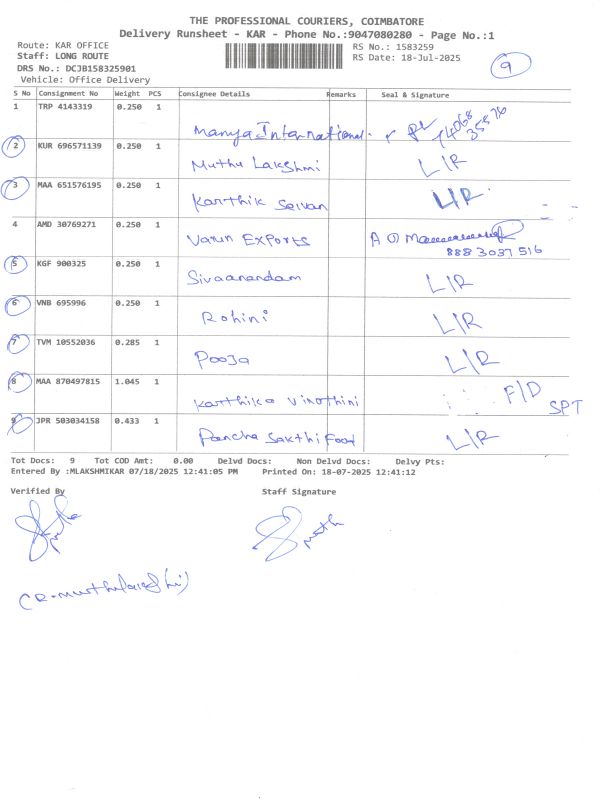 THE PROFESSIONAL COURIERS, COIMBATORE
Delivery Runsheet - KAR - Phone No.:9047080280 - Page No.:1
Route: KAR OFFICE
RS No.: 1583259
Staff: LONG ROUTE
RS Date: 18-Jul-2025
9
DRS No.: DCJB158325901
Vehicle: Office Delivery
S No Consignment No Weight PCS Consignee Details Remarks Seal & Signature
1 TRP 4143319 0.250 1
Manya International.
2 KUR 696571139 0.250 1
Muthu Lakshmi L/R
3 MAA 651576195 0.250 1
Karthik Selvan L/R.
4 AMD 30769271 0.250 1
Varun Exports
888 3037 516
5 KGF 900325 0.250 1
Sivaanandam L/R
6 VNB 695996 0.250 1
Rohini L/R
7 TVM 10552036 0.285 1
Pooja L/R
8 MAA 870497815 1.045 1
Karthika Vinothini F/D
SPT
9 JPR 503034158 0.433 1
Pancha Sakthi Food L/R
Tot Docs: 9 Tot COD Amt: 0.00 Delvd Docs: Non Delvd Docs: Delvy Pts:
Entered By :MLAKSHMIKAR 07/18/2025 12:41:05 PM Printed On: 18-07-2025 12:41:12
Verified By Staff Signature